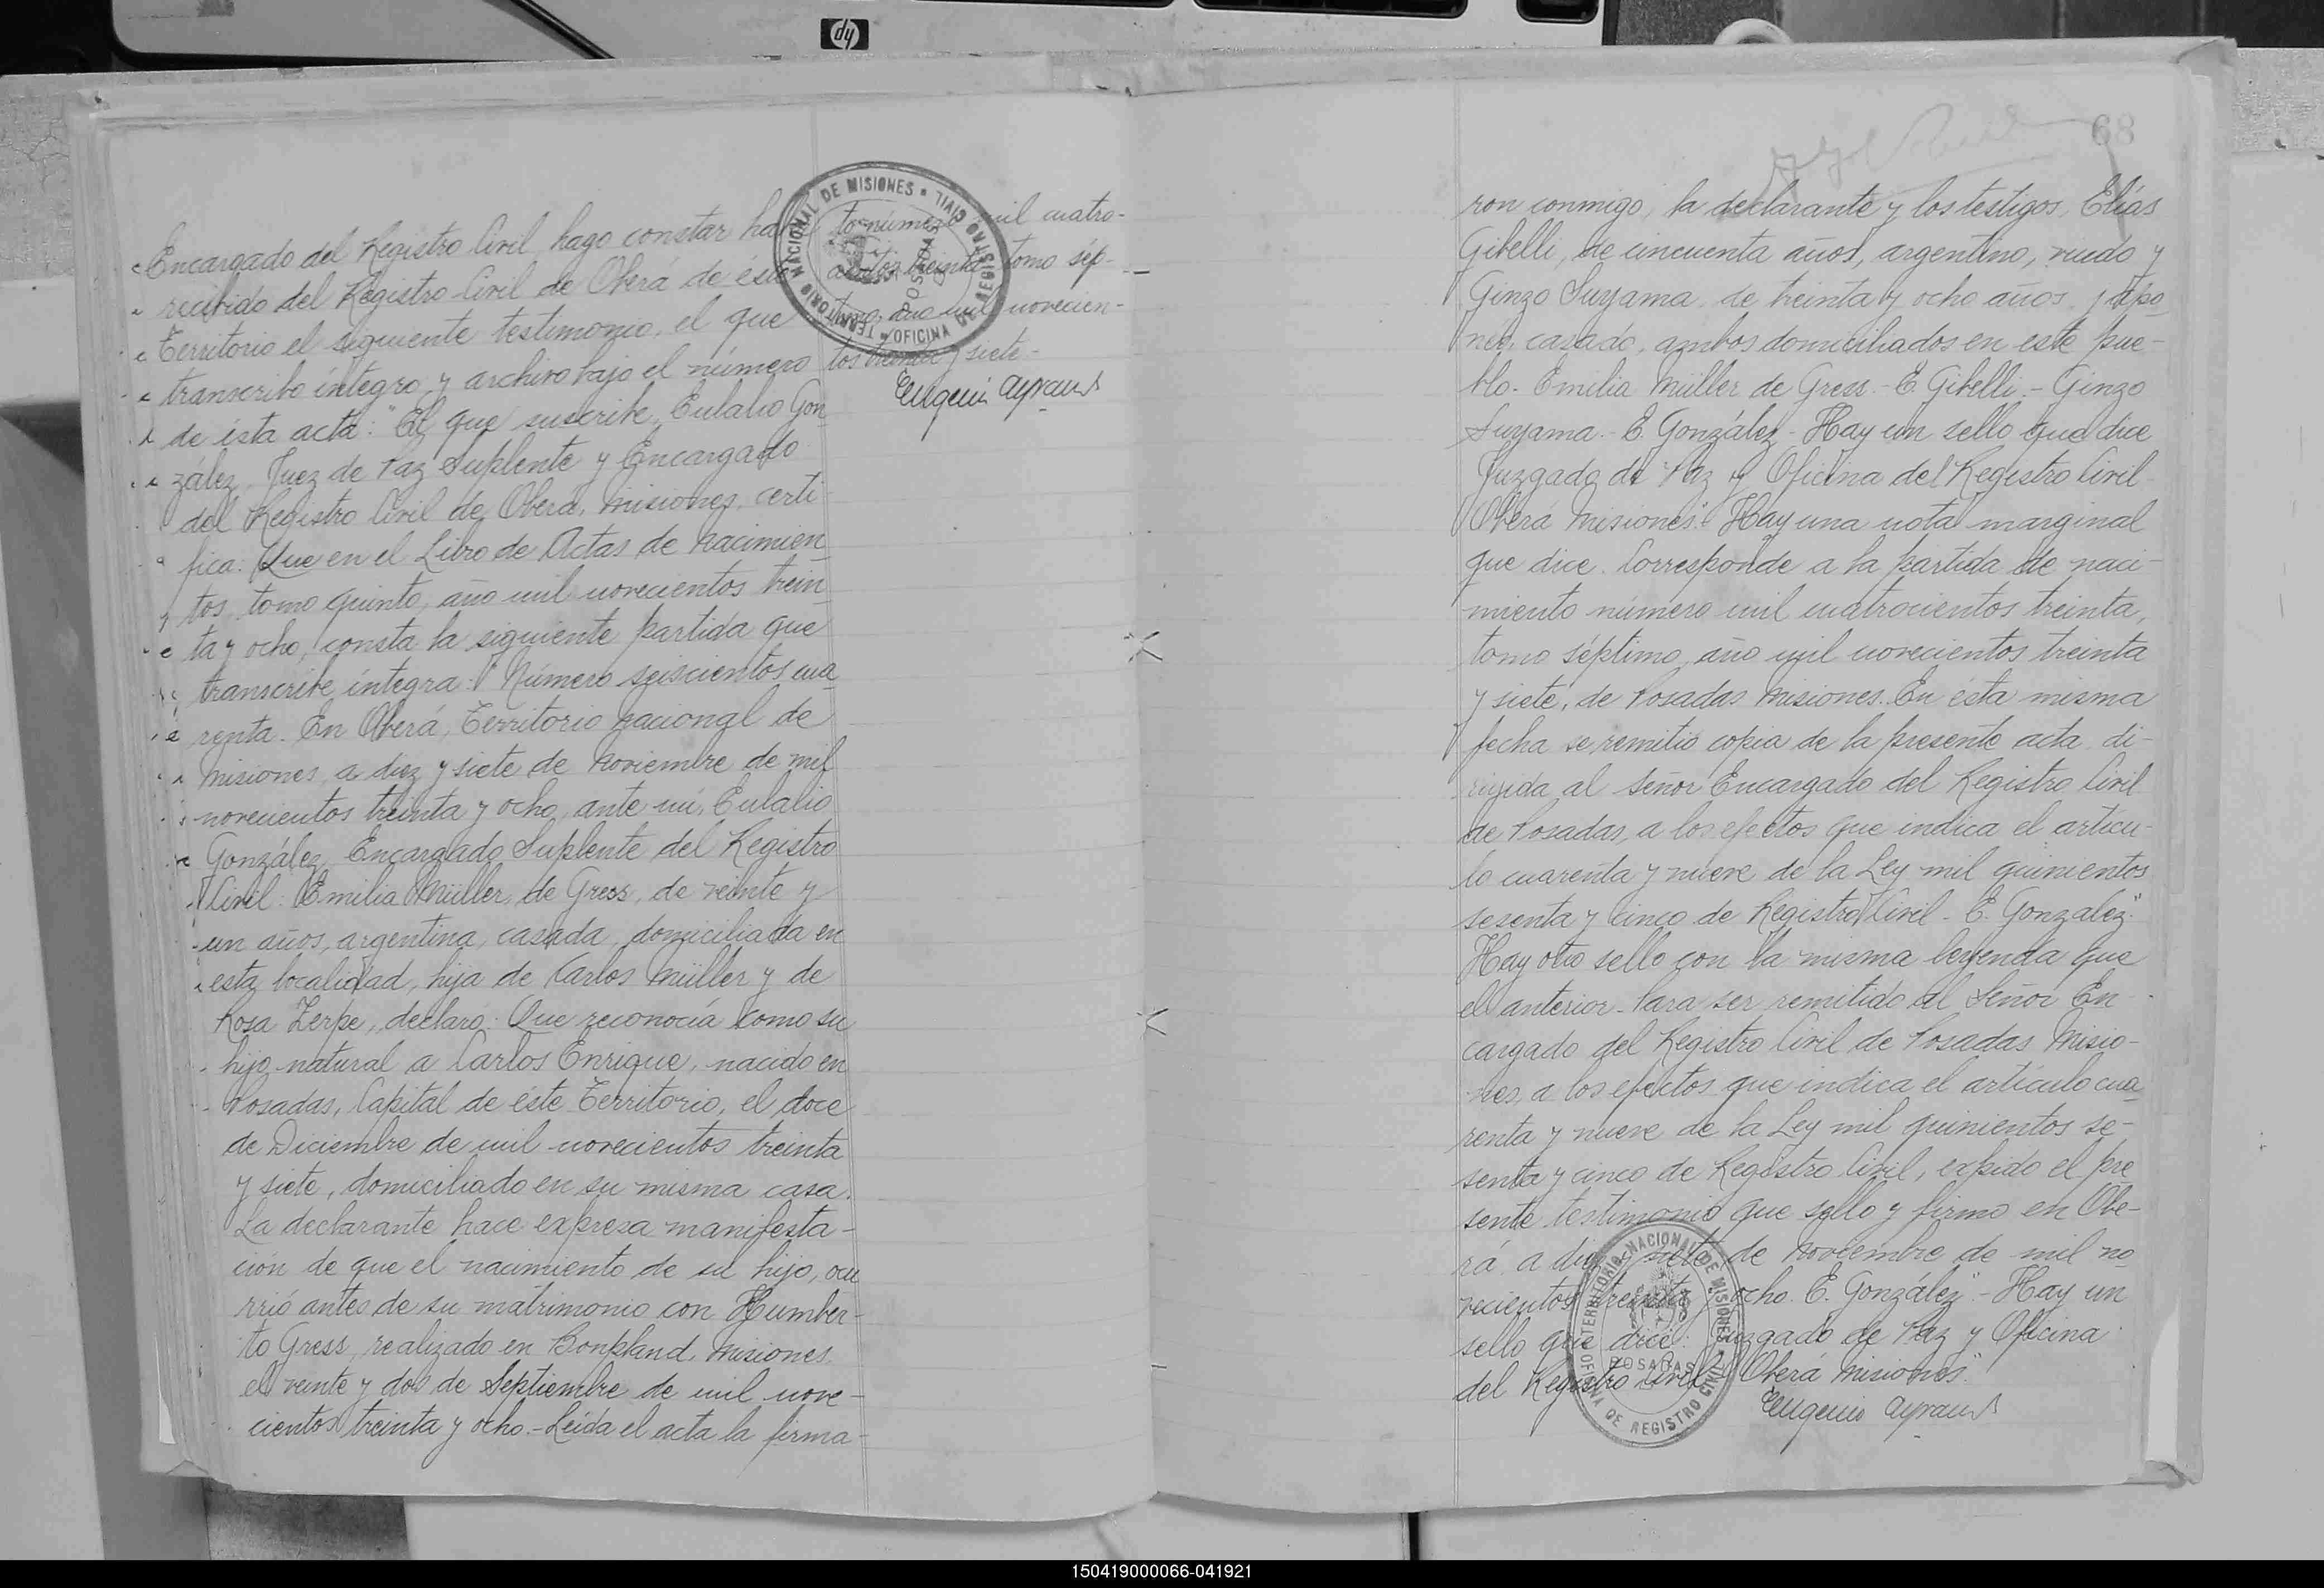 hp
Encargado del Registro Civil, hago constar haber
recibido del Registro Civil de Oberá de éste
Territorio el siguiente testimonio, el que
transcribo íntegro y archivo bajo el número
de ésta acta: "El que suscribe, Eulalio Gon
zález, Juez de Paz Suplente y Encargado
del Registro Civil de Oberá, Misiones, certi
fica: Que en el Libro de Actas de Nacimien
tos, tomo quinto, año mil novecientos trein
ta y ocho, consta la siguiente partida que
transcribe íntegra: "Número seiscientos cua
renta. En Oberá, Territorio Nacional de
Misiones, a diez y siete de Noviembre de mil
novecientos treinta y ocho, ante mí, Eulalio
González, Encargado Suplente del Registro
Civil: Emilia Müller de Gress, de veinte y
un años, argentina, casada, domiciliada en
esta localidad, hija de Carlos Müller y de
Rosa Zerpe, declaró: Que reconocía como su
hijo natural a Carlos Enrique, nacido en
Posadas, Capital de éste Territorio, el doce
de Diciembre de mil novecientos treinta
y siete, domiciliado en su misma casa.
La declarante hace expresa manifesta-
ción de que el nacimiento de su hijo, ocu
rrió antes de su matrimonio con Humber-
to Gress, realizado en Bonpland, Misiones,
el veinte y dos de Septiembre de mil nove-
cientos treinta y ocho.- Leída el acta la firma-
to número mil cuatro-
cientos treinta tomo sép-
timo, año mil novecien-
tos treinta y siete.-
Eugenio Ayrault
TERRITORIO NACIONAL DE MISIONES
OFICINA DE REGISTRO CIVIL
POSADAS
68
ron conmigo, la declarante y los testigos, Elías
Gibelli, de cincuenta años, argentino, viudo y
Ginzo Suyama, de treinta y ocho años, japo
nés, casado, ambos domiciliados en este pue-
blo. Emilia Müller de Gress.- E. Gibelli.- Ginzo
Suyama.- E. González.- Hay un sello que dice
Juzgado de Paz y Oficina del Registro Civil
Oberá Misiones". Hay una nota marginal
que dice. Corresponde a la partida de naci-
miento número mil cuatrocientos treinta,
tomo séptimo, año mil novecientos treinta
y siete, de Posadas Misiones. En ésta misma
fecha se remitió copia de la presente acta di-
rigida al Señor Encargado del Registro Civil
de Posadas, a los efectos que indica el artícu-
lo cuarenta y nueve de la Ley mil quinientos
sesenta y cinco de Registro Civil - E. González".
Hay otro sello con la misma leyenda que
el anterior. Para ser remitido al Señor En-
cargado del Registro Civil de Posadas Misio-
nes, a los efectos que indica el artículo cua
renta y nueve de la Ley mil quinientos se-
senta y cinco de Registro Civil, expido el pre
sente testimonio que sello y firmo en Obe-
rá a diez y siete de Noviembre de mil no
vecientos treinta y ocho. E. González".- Hay un
sello que dice: Juzgado de Paz y Oficina
del Registro Civil Oberá Misiones".
Eugenio Ayrault
TERRITORIO NACIONAL DE MISIONES
OFICINA DE REGISTRO CIVIL
POSADAS
150419000066-041921